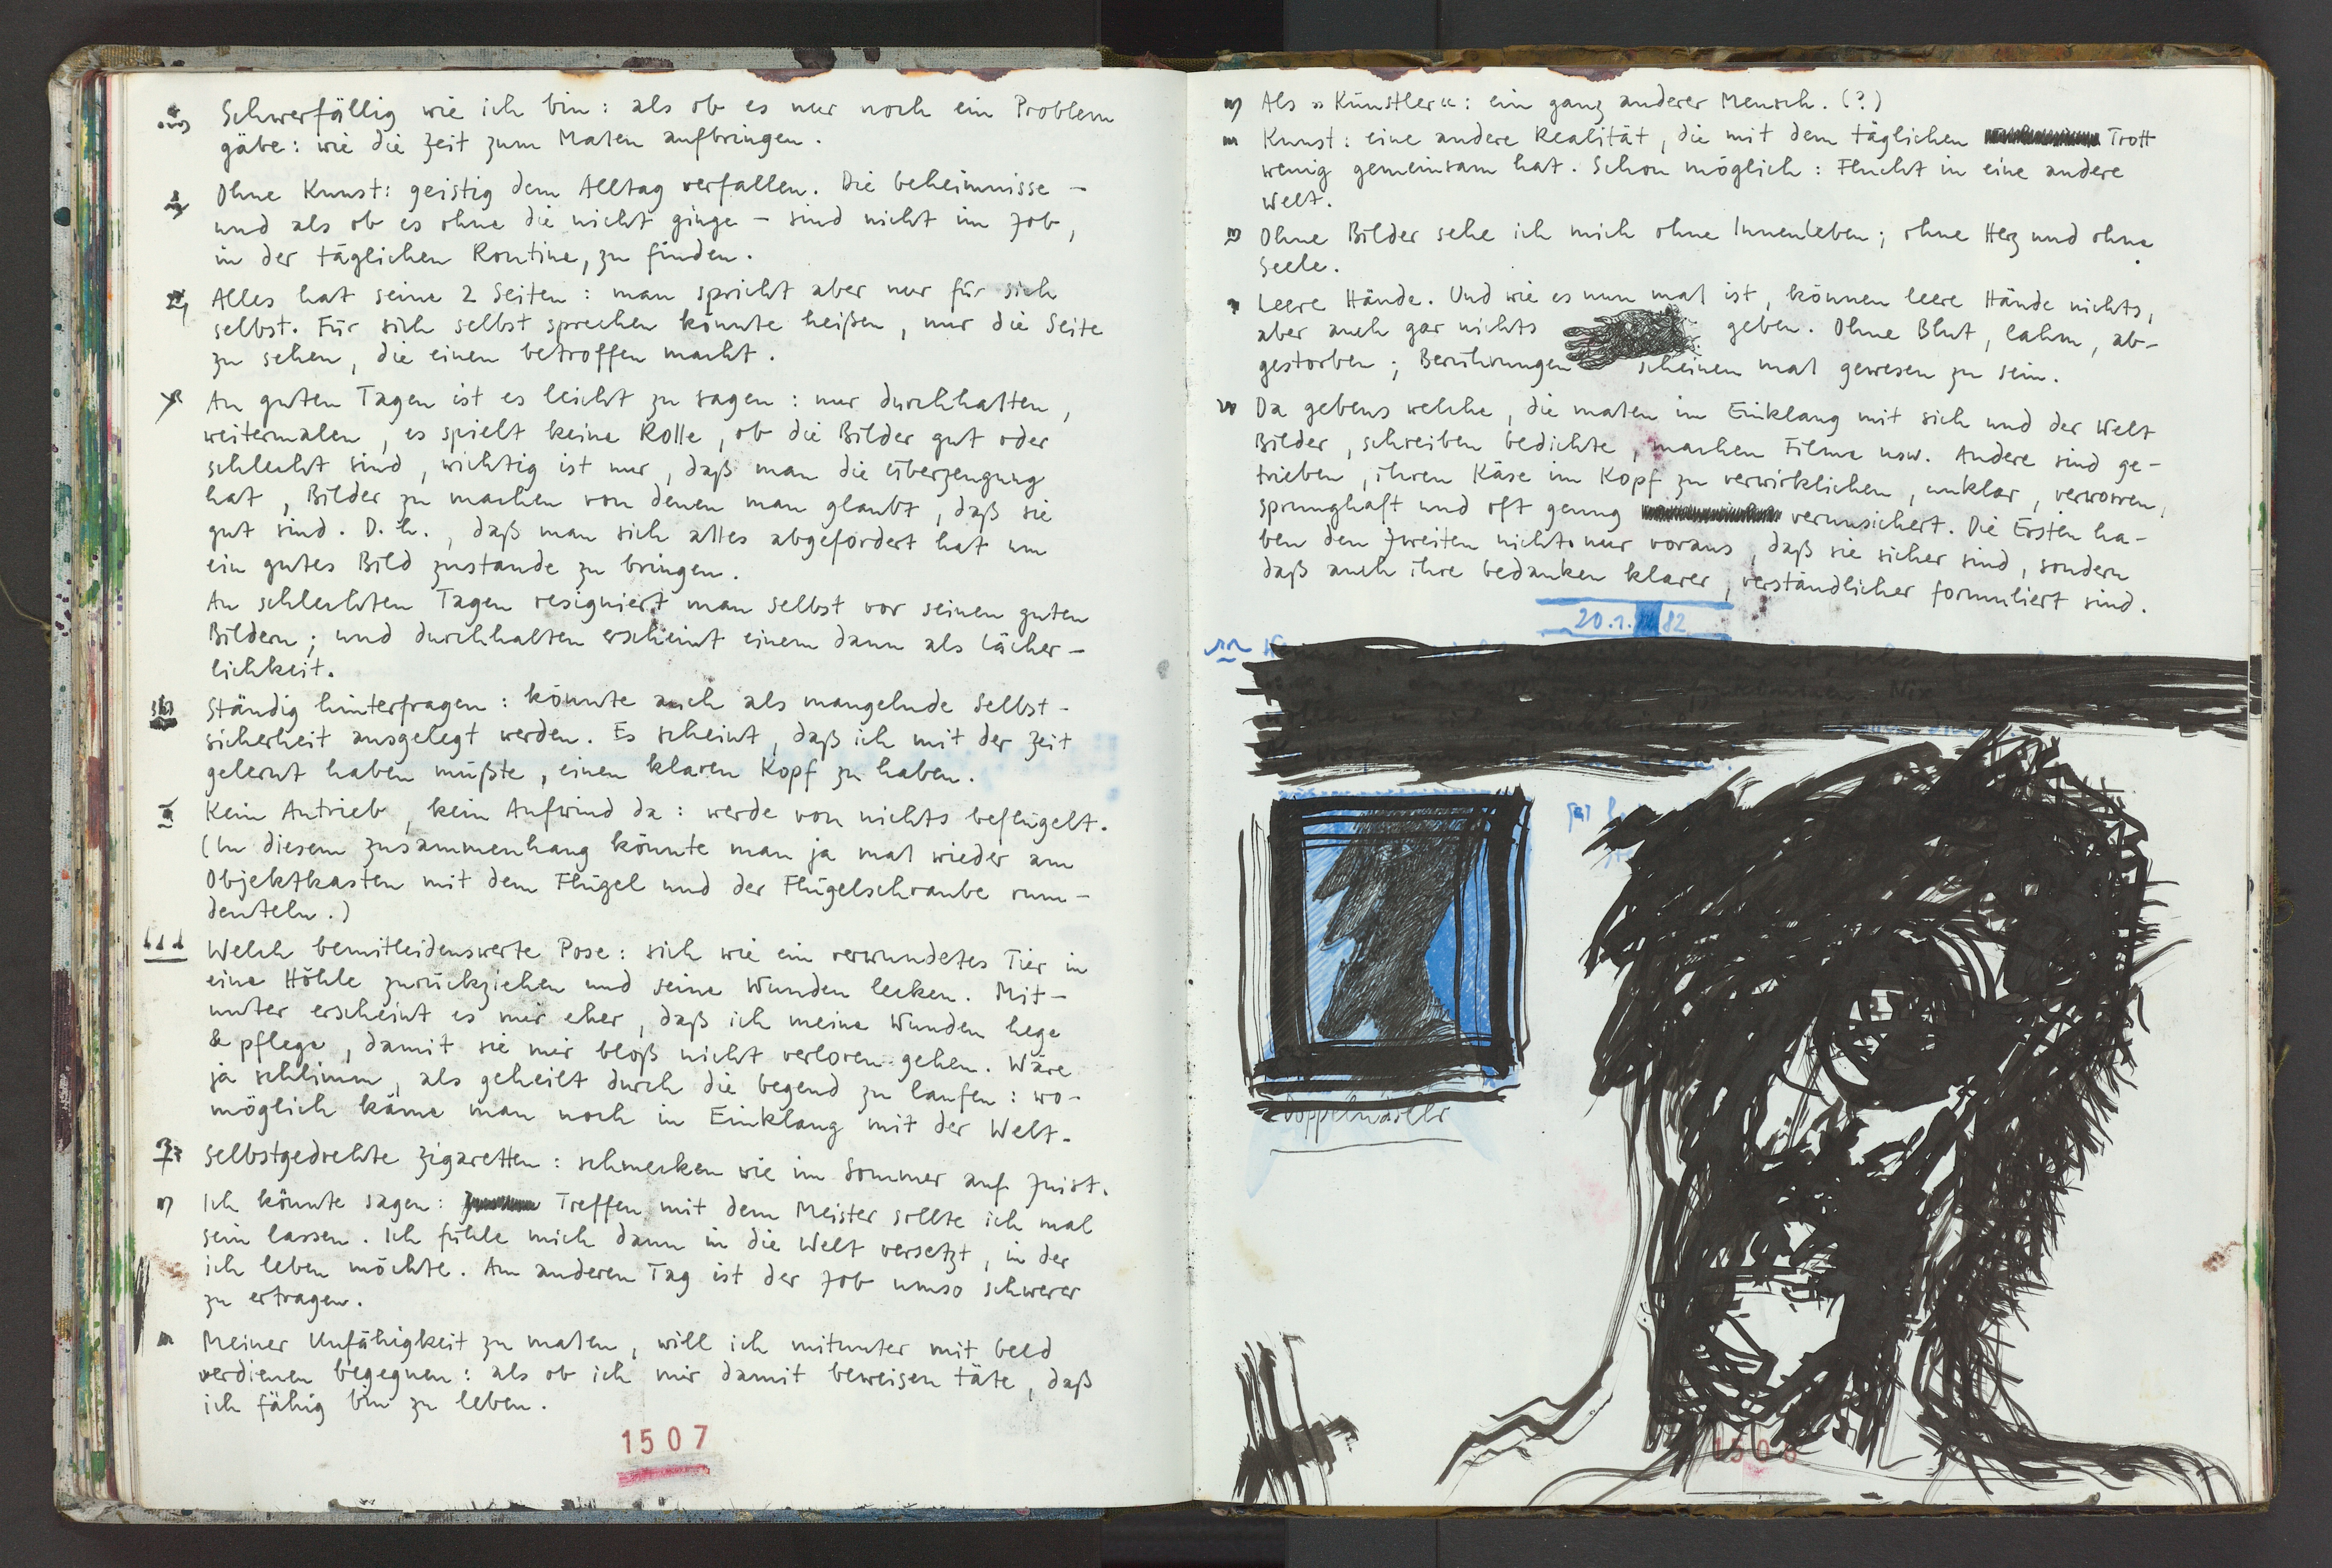 Schwerfällig wie ich bin: als ob es nur noch ein Problem
gäbe: wie die Zeit zum Malen aufbringen.
Ohne Kunst: geistig dem Alltag verfallen. Die Geheimnisse –
und als ob es ohne die nicht ginge – sind nicht im Job,
in der täglichen Routine, zu finden.
Alles hat seine 2 Seiten: man spricht aber nur für sich
selbst. Für sich selbst sprechen könnte heißen, nur die Seite
zu sehen, die einen betroffen macht.
An guten Tagen ist es leicht zu sagen: nur durchhalten,
weitermalen, es spielt keine Rolle, ob die Bilder gut oder
schlecht sind, wichtig ist nur, daß man die Überzeugung
hat, Bilder zu machen von denen man glaubt, daß sie
gut sind. D.h., daß man sich alles abgefordert hat um
ein gutes Bild zustande zu bringen.
An schlechten Tagen resigniert man selbst vor seinen guten
Bildern; und durchhalten erscheint einem dann als Lächer-
lichkeit.
Ständig hinterfragen: könnte auch als mangelnde Selbst-
sicherheit ausgelegt werden. Es scheint, daß ich mit der Zeit
gelernt haben müßte, einen klaren Kopf zu haben.
Kein Antrieb, kein Aufwind da: werde von nichts beflügelt.
(In diesem Zusammenhang könnte man ja mal wieder am
Objektkasten mit dem Flügel und der Flügelschraube rum-
deuteln.)
Welch bemitleidenswerte Pose: sich wie ein verwundetes Tier in
eine Höhle zurückziehen und seine Wunden lecken. Mit-
unter erscheint es mir eher, daß ich meine Wunden hege
& pflege, damit sie mir bloß nicht verloren gehen. Wäre
ja schlimm, als geheilt durch die Gegend zu laufen: wo-
möglich käme man noch in Einklang mit der Welt.
Selbstgedrehte Zigaretten: schmecken wie im Sommer auf Juist.
Ich könnte sagen: Treffen mit dem Meister sollte ich mal
sein lassen. Ich fühle mich dann in die Welt versetzt, in der
ich leben möchte. Am anderen Tag ist der Job umso schwerer
zu ertragen.
Meiner Unfähigkeit zu malen, will ich mitunter mit Geld
verdienen begegnen: als ob ich mir damit beweisen täte, daß
ich fähig bin zu leben.
1507
Als »Künstler«: ein ganz anderer Mensch. (?)
Kunst: eine andere Realität, die mit dem täglichen Trott
wenig gemeinsam hat. Schon möglich: Flucht in eine andere
Welt.
Ohne Bilder sehe ich mich ohne Innenleben; ohne Herz und ohne
Seele.
Leere Hände. Und wie es nun mal ist, können leere Hände nichts,
aber auch gar nichts geben. Ohne Blut, lahm, ab-
gestorben; Berührungen scheinen mal gewesen zu sein.
Da gebens welche, die malen im Einklang mit sich und der Welt
Bilder, schreiben Gedichte, machen Filme usw. Andere sind ge-
trieben, ihren Käse im Kopf zu verwirklichen, unklar, verworren,
sprunghaft und oft genug verunsichert. Die Ersten ha-
ben den Zweiten nicht nur voraus, daß sie sicher sind, sondern
daß auch ihre Gedanken klarer, verständlicher formuliert sind.
20.1.82
1508